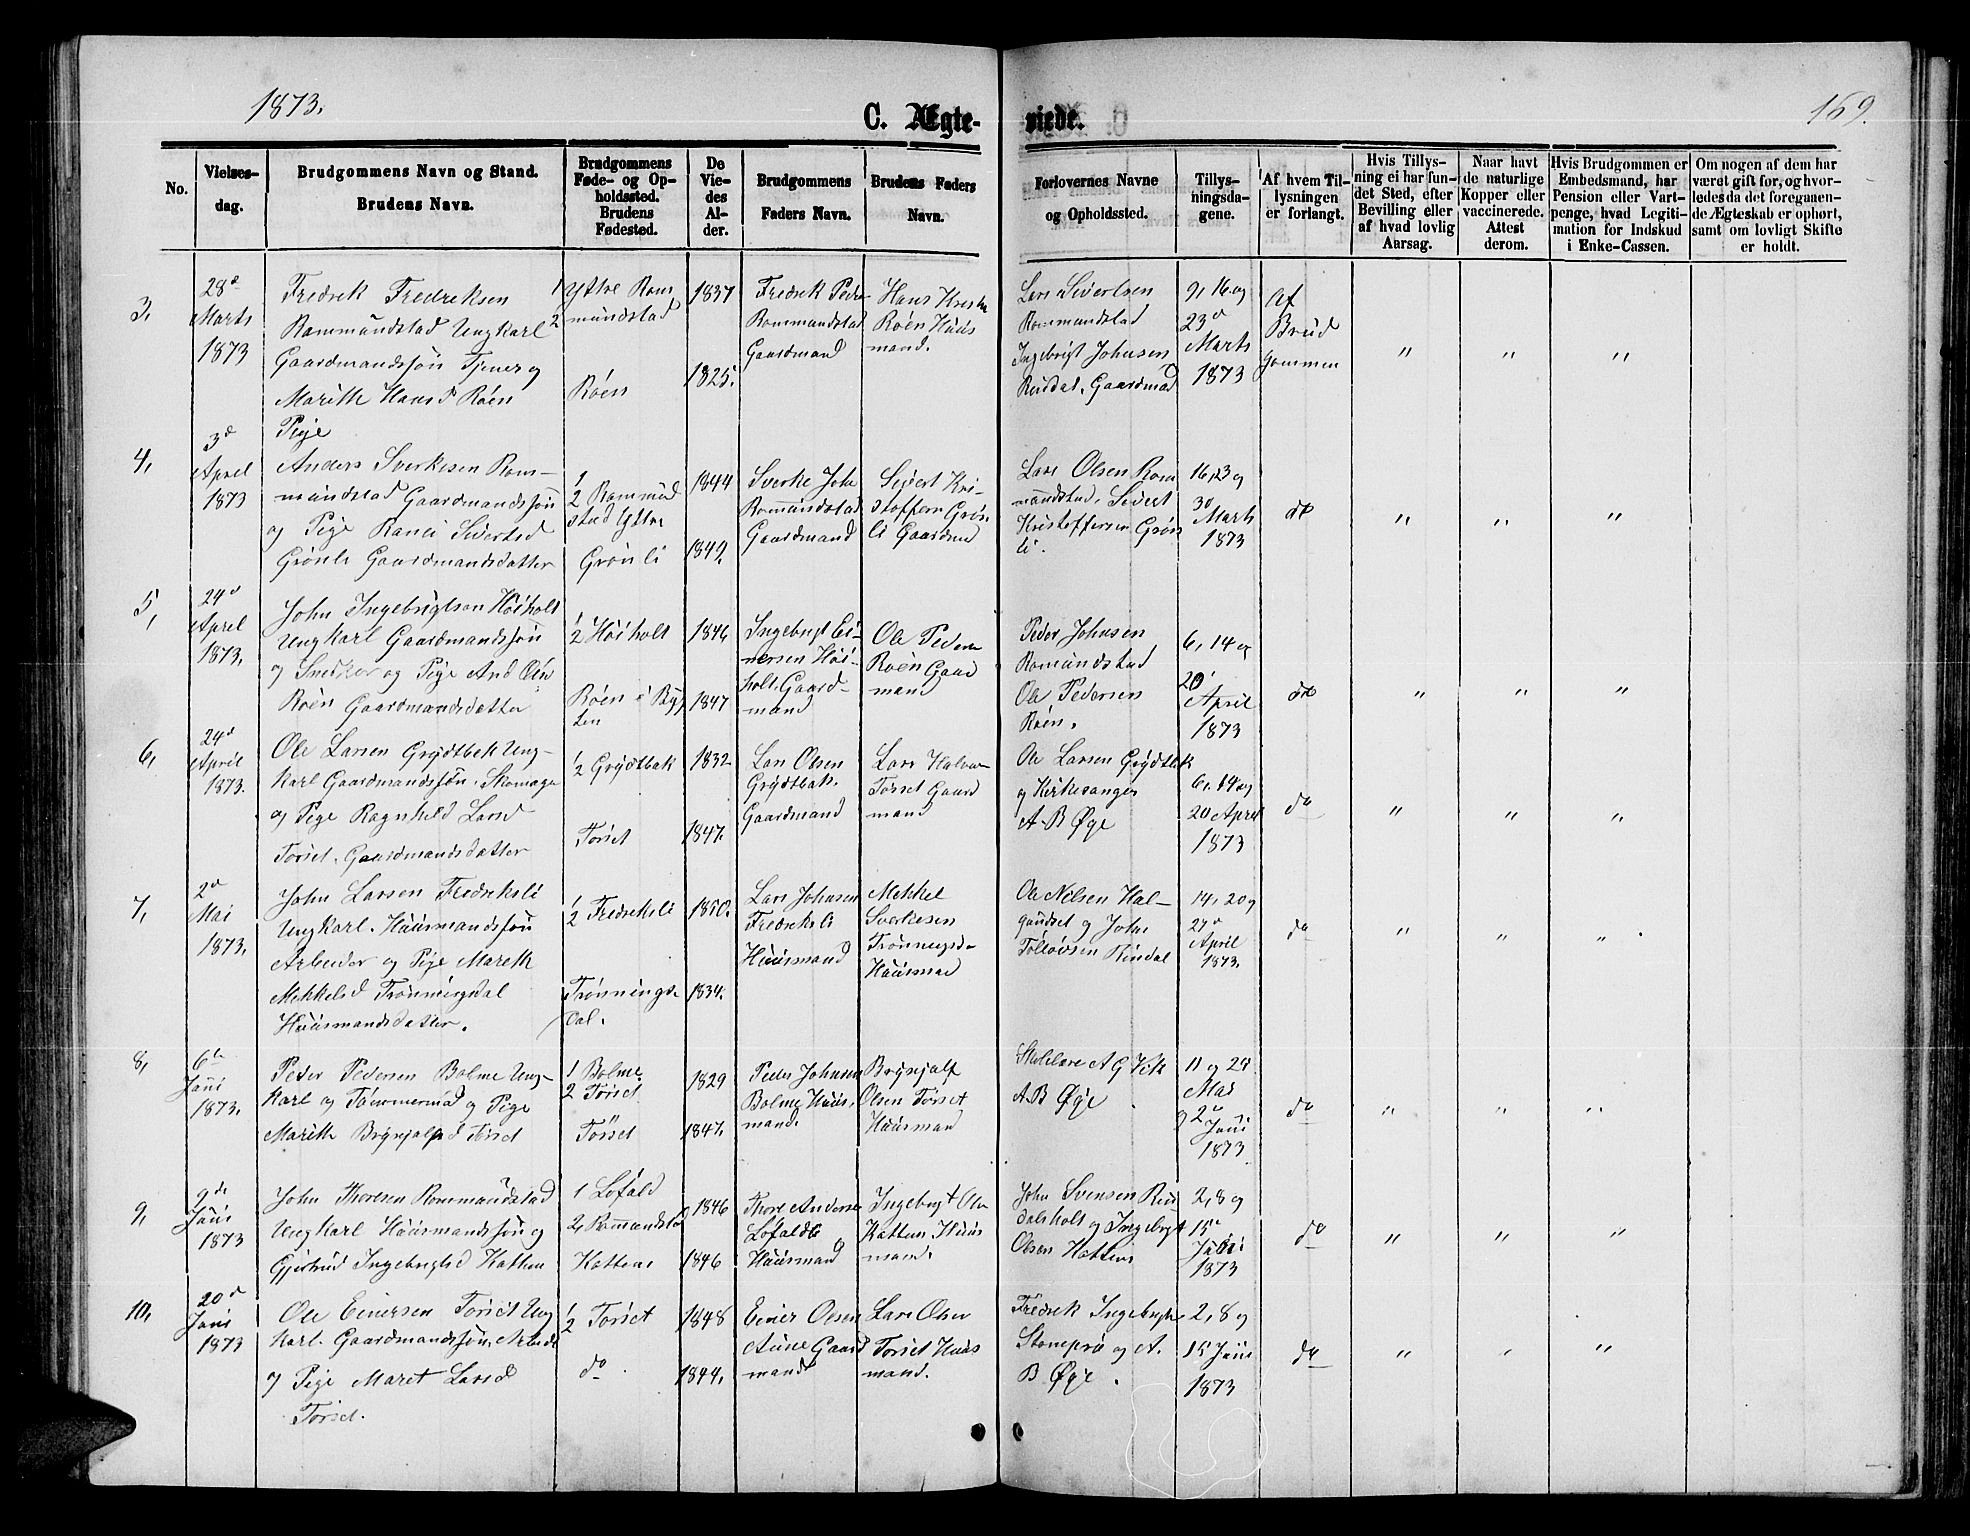 1873.
C. Ægte-
viede.
169.
No.
Vielses-
dag.
Brudgommens Navn og Stand.
Brudens Navn.
Brudgommens
Føde- og Op-
holdssted.
Brudens
Fødested.
De
Vie-
des
Al-
der.
Brudgommens
Faders Navn.
Brudens Faders
Navn.
Forlovernes Navne
og Opholdssted.
Tillys-
ningsda-
gene.
Af hvem Til-
lysningen
er forlangt.
Hvis Tillys-
ning ei har fun-
det Sted, efter
Bevilling eller
af hvad lovlig
Aarsag.
Naar havt
de naturlige
Kopper eller
vaccinerede.
Attest
derom.
Hvis Brudgommen er
Embedsmand, har
Pension eller Vart-
penge, hvad Legiti-
mation for Indskud
i Enke-Cassen.
Om nogen af dem har
været gift for, og hvor-
ledes da det foregaaen-
de Ægteskab er ophørt,
samt om lovligt Skifte
er holdt.
3,
28d
Marts
1873
Fredrek Fredreksen
Rommundstad Ungkarl
Gaardmandssøn Tjener og
Marith Hansd Röen
Pige
1 Ytre Rom
2 mundstad
Röen
1837
1825.
Fredrek Peder
Rommundstad
Gaardmand
Hans Kresten
Roën Huus
mand.
Lars Sivertsen
Rommundstad
Ingebrigt Johnsen
Gaardmad
9, 16 og
23d
Marts
1873
Af
Brud
gommen
" " "
4,
3d
Aprel
1873
Anders Sverkesen Rom-
mundstad Gaardmandssøn
og Pige Ranei Sivertsd
Grönli Gaardmandsdatter
1
2 Rommud
stad Ytre
Grönli
1844
1849.
Sverke John
Romundstad
Gaardmand
Sivert Kri-
stoffersn Grön
li Gaardmd
Lars Olsen Rom
mundstad, Sivert
Kristoffersen Grön
li.
16, 23 og
30
Marts
1873
do
" " "
5,
24d
Aprel
1873.
John Ingebrigtsen Höiholt
Ungkarl Gaardmandssøn
og Snedker og Pige And Olsn
Röen Gaardmandsdatter
1
2 Höiholt
Röen i Byg
ten
1846
1847
Ingebrigt Ei-
nersen Höi-
holt. Gaard-
mand
Ole Pedersen
Roën Gaad
mand
Peder Johnsen
Romundstad
Ole Pedersen
Röen.
6, 14 og
20
April
1873
do
" " "
6,
24d
April
1873.
Ole Larsen Grydtbak Ung-
karl Gaardmandssøn. Skomager
og Pige Ragnhild Larsd
Torset. Gaardmandsdatter
1
2 Grydtbak
Torset
1832
1847.
Lars Olsen
Grydtbak.
Gaardmand
Lars Halvor
Torset Gaard
mand
Ole Larsen Grydtbak
og Kirkesanger
A. B Øye
6, 14 og
20 April
1873
do
" " "
7,
2d
Mai
1873.
John Larsen Fredreksli
Ungkarl. Huusmandssøn
Arbeider og Pige Mareth
Mekkelsd Trönningsdal
Huusmandsdatter.
1
2 Fredreksli
Trönnings-
dal.
1850.
1834.
Lars Johnsen
Fredreksli
Huusmand
Mekkel
Sverkesen
Trönningsda
Huusmad
Ole Nilsen Hal-
gundset og John
Tollovsen Rindal
14, 20 og
27d
April
1873.
do
" " "
8,
6te
Juni
1873.
Peder Pedersen Bolme Ung-
karl og Tömmermad og Pige
Marith Brynjolpsd Törset
1 Bolme.
2 Törset
Törset
1829
1847.
Peder Johnsen
Bolme Huus.
mand.
Brynjolf
Olsen Törset
Huusman
Skolelære A G Vik
A. B Øye
11 og 24
Mai
og 2d
Juni
1873
do
" " "
9,
9de
Juni
1873
John Thoresen Rommundstad
Ungkarl Huusmandssøn og
Gjertrud Ingebrigtsd Kattem
1 Löfald
2, Rommundstad
Kattem
1846
1846
Thore Anderse
Löfaldli
Huusmand
Ingebrigt Ole
Kattem Huus
mand.
John Svensen Rin
dalsholt og Ingebrigt
Olsen Kattem
2, 8 og
15d
Juni
1873
do
" " "
10,
20d
Juni
1873
Ole Einersen Torset Ung
karl. Gaardmandssøn. Arbeide
og Pige Maret Larsd
Torset.
1
2 Torset
do
1848
1844.
Einer Olsen
Aune Gaard
mand
Lars Olsen
Torset Huus
mand.
Fredrek Ingebrigts
Stomprö og A.
B Øye.
2, 8 og
15 Juni
1873
do
" " "